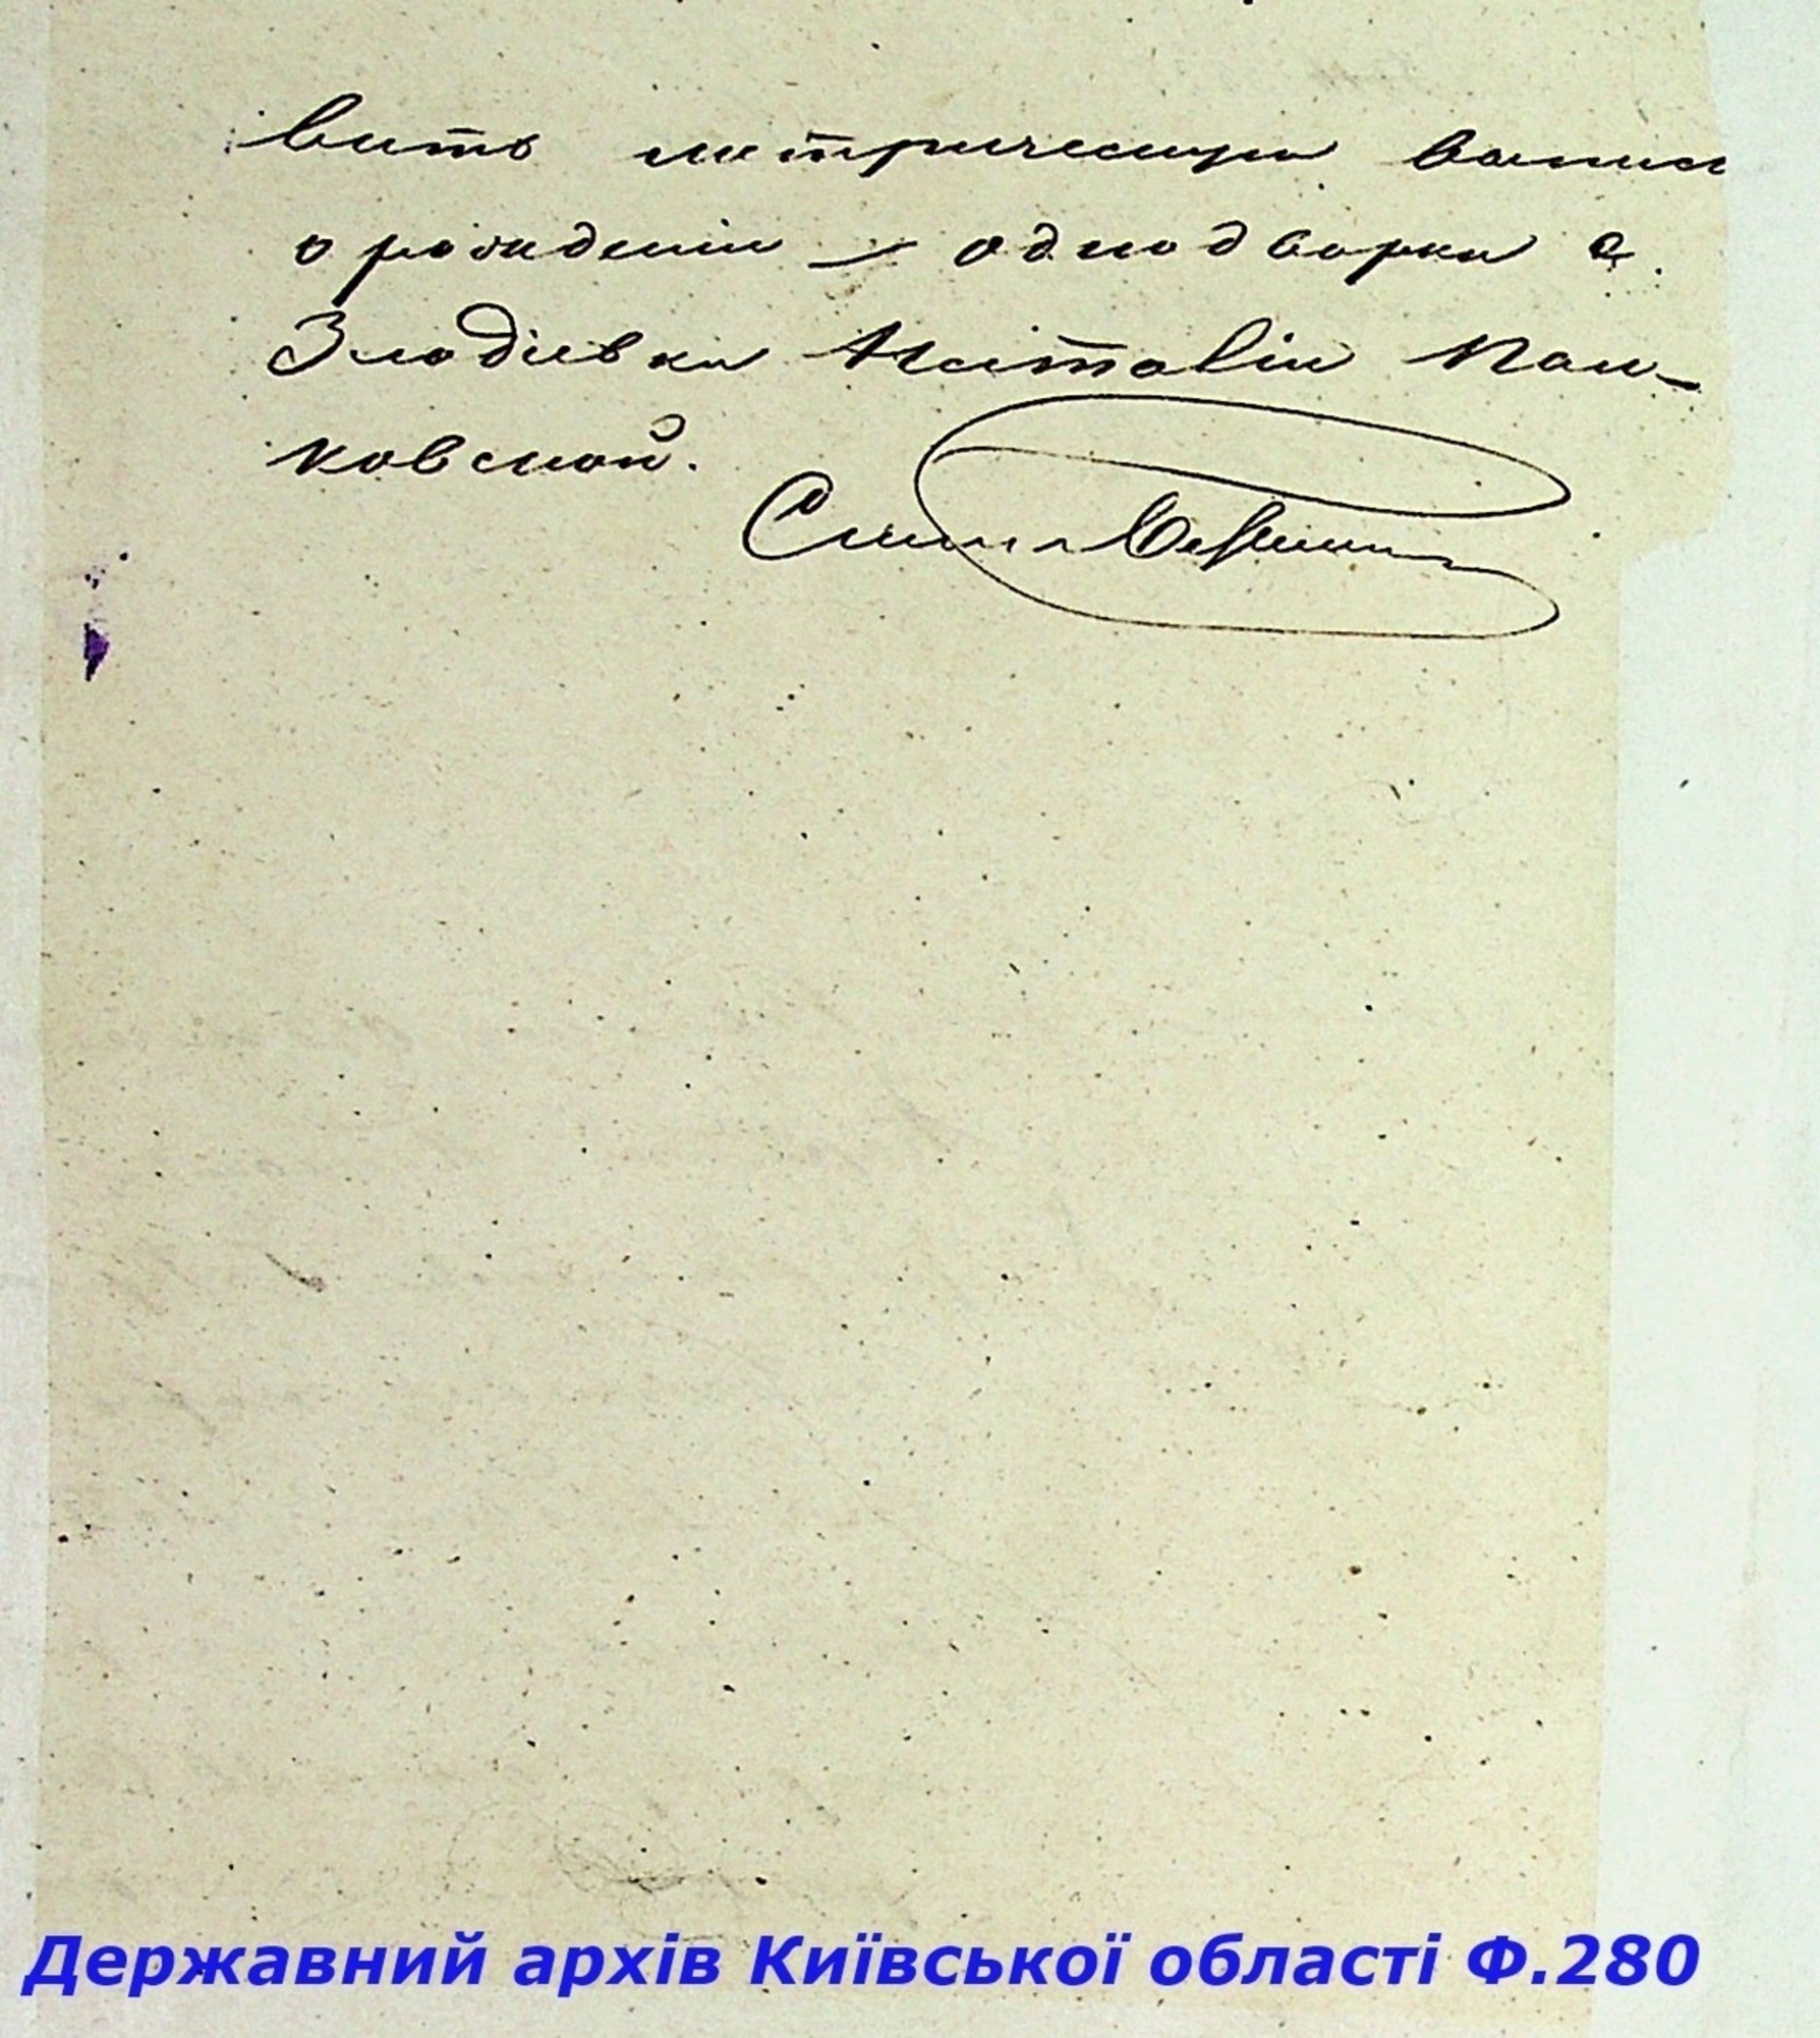 вить метрическую
о рождении — однодворки с.
Злодіевки Наталіи Пань-
ковской.
Державний архів Київської області Ф.280